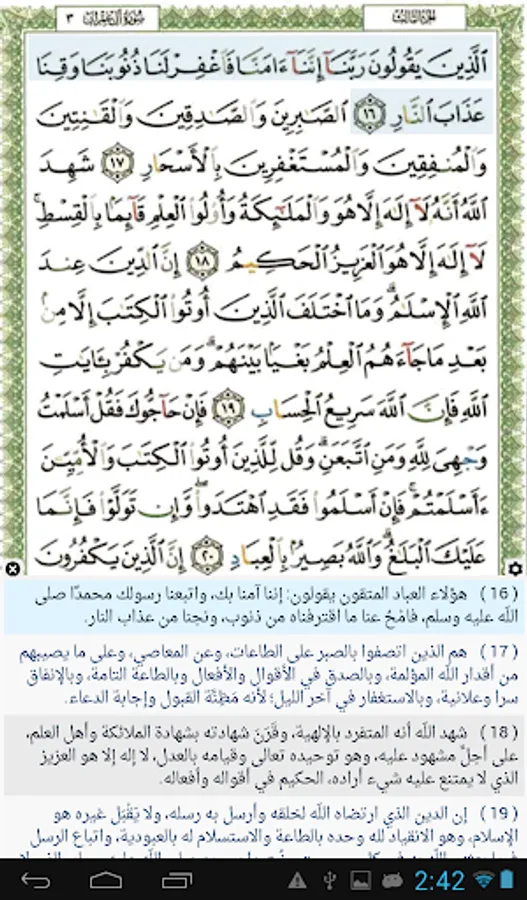 سورة آل عمران ٣
الجزء الثالث
ٱلَّذِينَ يَقُولُونَ رَبَّنَآ إِنَّنَآ ءَامَنَّا فَٱغْفِرْ لَنَا ذُنُوبَنَا وَقِنَا
عَذَابَ ٱلنَّارِ ١٦ ٱلصَّٰبِرِينَ وَٱلصَّٰدِقِينَ وَٱلْقَٰنِتِينَ
وَٱلْمُنفِقِينَ وَٱلْمُسْتَغْفِرِينَ بِٱلْأَسْحَارِ ١٧ شَهِدَ
ٱللَّهُ أَنَّهُۥ لَآ إِلَٰهَ إِلَّا هُوَ وَٱلْمَلَٰٓئِكَةُ وَأُو۟لُوا۟ ٱلْعِلْمِ قَآئِمًۢا بِٱلْقِسْطِ ۚ
لَآ إِلَٰهَ إِلَّا هُوَ ٱلْعَزِيزُ ٱلْحَكِيمُ ١٨ إِنَّ ٱلدِّينَ عِندَ
ٱللَّهِ ٱلْإِسْلَٰمُ ۗ وَمَا ٱخْتَلَفَ ٱلَّذِينَ أُوتُوا۟ ٱلْكِتَٰبَ إِلَّا مِنۢ
بَعْدِ مَا جَآءَهُمُ ٱلْعِلْمُ بَغْيًۢا بَيْنَهُمْ ۗ وَمَن يَكْفُرْ بِـَٔايَٰتِ
ٱللَّهِ فَإِنَّ ٱللَّهَ سَرِيعُ ٱلْحِسَابِ ١٩ فَإِنْ حَآجُّوكَ فَقُلْ أَسْلَمْتُ
وَجْهِىَ لِلَّهِ وَمَنِ ٱتَّبَعَنِ ۗ وَقُل لِّلَّذِينَ أُوتُوا۟ ٱلْكِتَٰبَ وَٱلْأُمِّيِّـۧنَ
ءَأَسْلَمْتُمْ ۚ فَإِنْ أَسْلَمُوا۟ فَقَدِ ٱهْتَدَوا۟ ۖ وَّإِن تَوَلَّوْا۟ فَإِنَّمَا
عَلَيْكَ ٱلْبَلَٰغُ ۗ وَٱللَّهُ بَصِيرٌۢ بِٱلْعِبَادِ ٢٠ إِنَّ ٱلَّذِينَ يَكْفُرُونَ
(16) هؤلاء العباد المتقون يقولون: إننا آمنا بك، واتبعنا رسولك محمدًا صلى
الله عليه وسلم، فامْحُ عنا ما اقترفناه من ذنوب، ونجنا من عذاب النار.
(17) هم الذين اتصفوا بالصبر على الطاعات، وعن المعاصي، وعلى ما يصيبهم
من أقدار الله المؤلمة، وبالصدق في الأقوال والأفعال وبالطاعة التامة، وبالإنفاق
سرا وعلانية، وبالاستغفار في آخر الليل؛ لأنه مَظِنَّة القبول وإجابة الدعاء.
(18) شهد الله أنه المتفرد بالإلهية، وقَرَنَ شهادته بشهادة الملائكة وأهل العلم،
على أجلِّ مشهود عليه، وهو توحيده تعالى وقيامه بالعدل، لا إله إلا هو العزيز
الذي لا يمتنع عليه شيء أراده، الحكيم في أقواله وأفعاله.
(19) إن الدين الذي ارتضاه الله لخلقه وأرسل به رسله، ولا يَقْبَل غيره هو
الإسلام، وهو الانقياد لله وحده بالطاعة والاستسلام له بالعبودية، واتباع الرسل
2:42